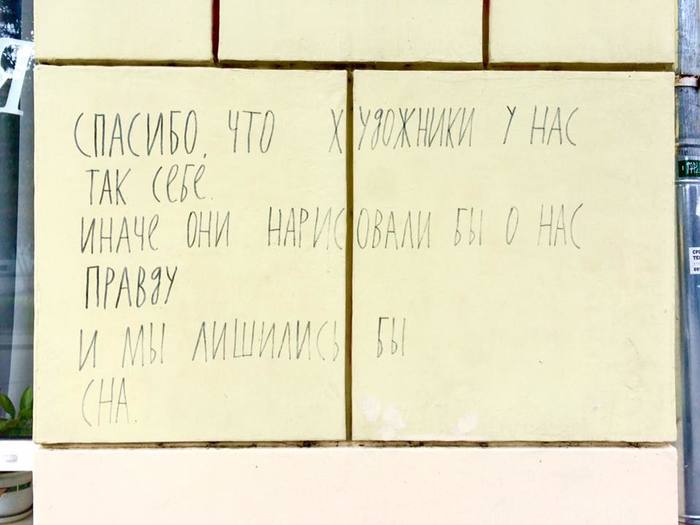 СПАСИБО, ЧТО ХУДОЖНИКИ У НАС
ТАК СЕБЕ.
ИНАЧЕ ОНИ НАРИСОВАЛИ БЫ О НАС
ПРАВДУ
И МЫ ЛИШИЛИСЬ БЫ
СНА.